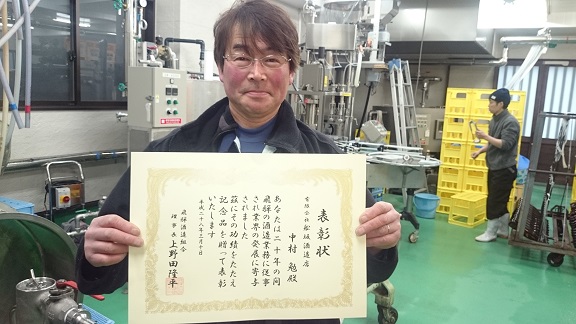 表彰状
有限会社舩坂酒造店
中村 勉殿
あなたは二十年の間
飛騨の酒造業務に従事
され業界の発展に寄与
されました
茲にその功績をたたえ
記念品を贈って表彰
いたします
平成二十八年二月十日
飛騨酒造組合
理事長 上野田隆平